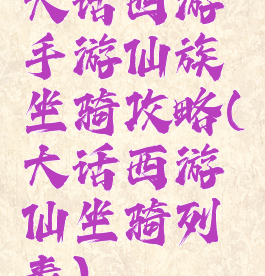 大话西游
手游仙族
坐骑攻略(
大话西游
仙坐骑列
表)